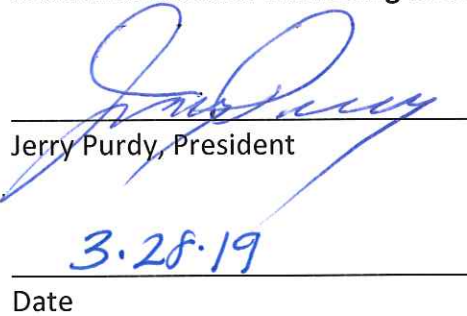 Jerry Purdy, President
3.28.19
Date